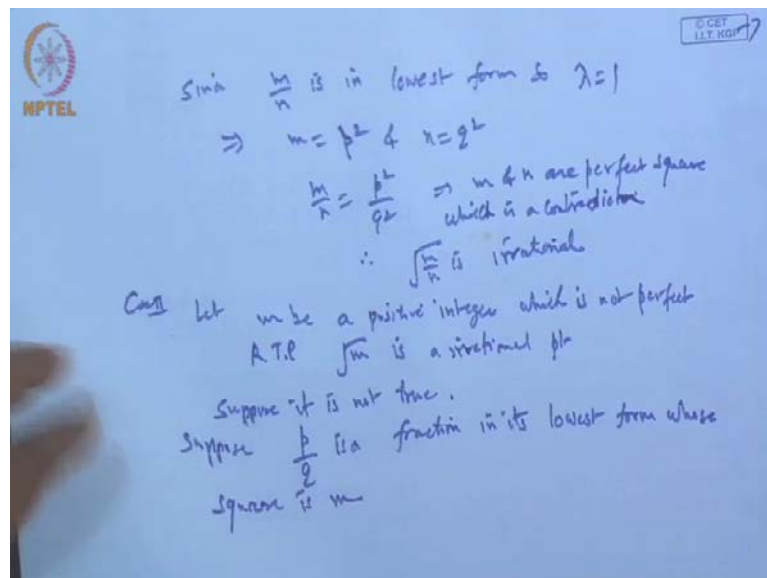 © CET
I.I.T. KGP
NPTEL
Since m/n is in lowest form so λ=1
⇒ m = p² & n = q²
m/n = p²/q² ⇒ m & n are perfect square
which is a contradiction
∴ √(m/n) is irrational.
Case II Let m be a positive integer which is not perfect
R.T.P √m is a irrational pt
Suppose it is not true.
Suppose p/q is a fraction in its lowest form whose
square is m